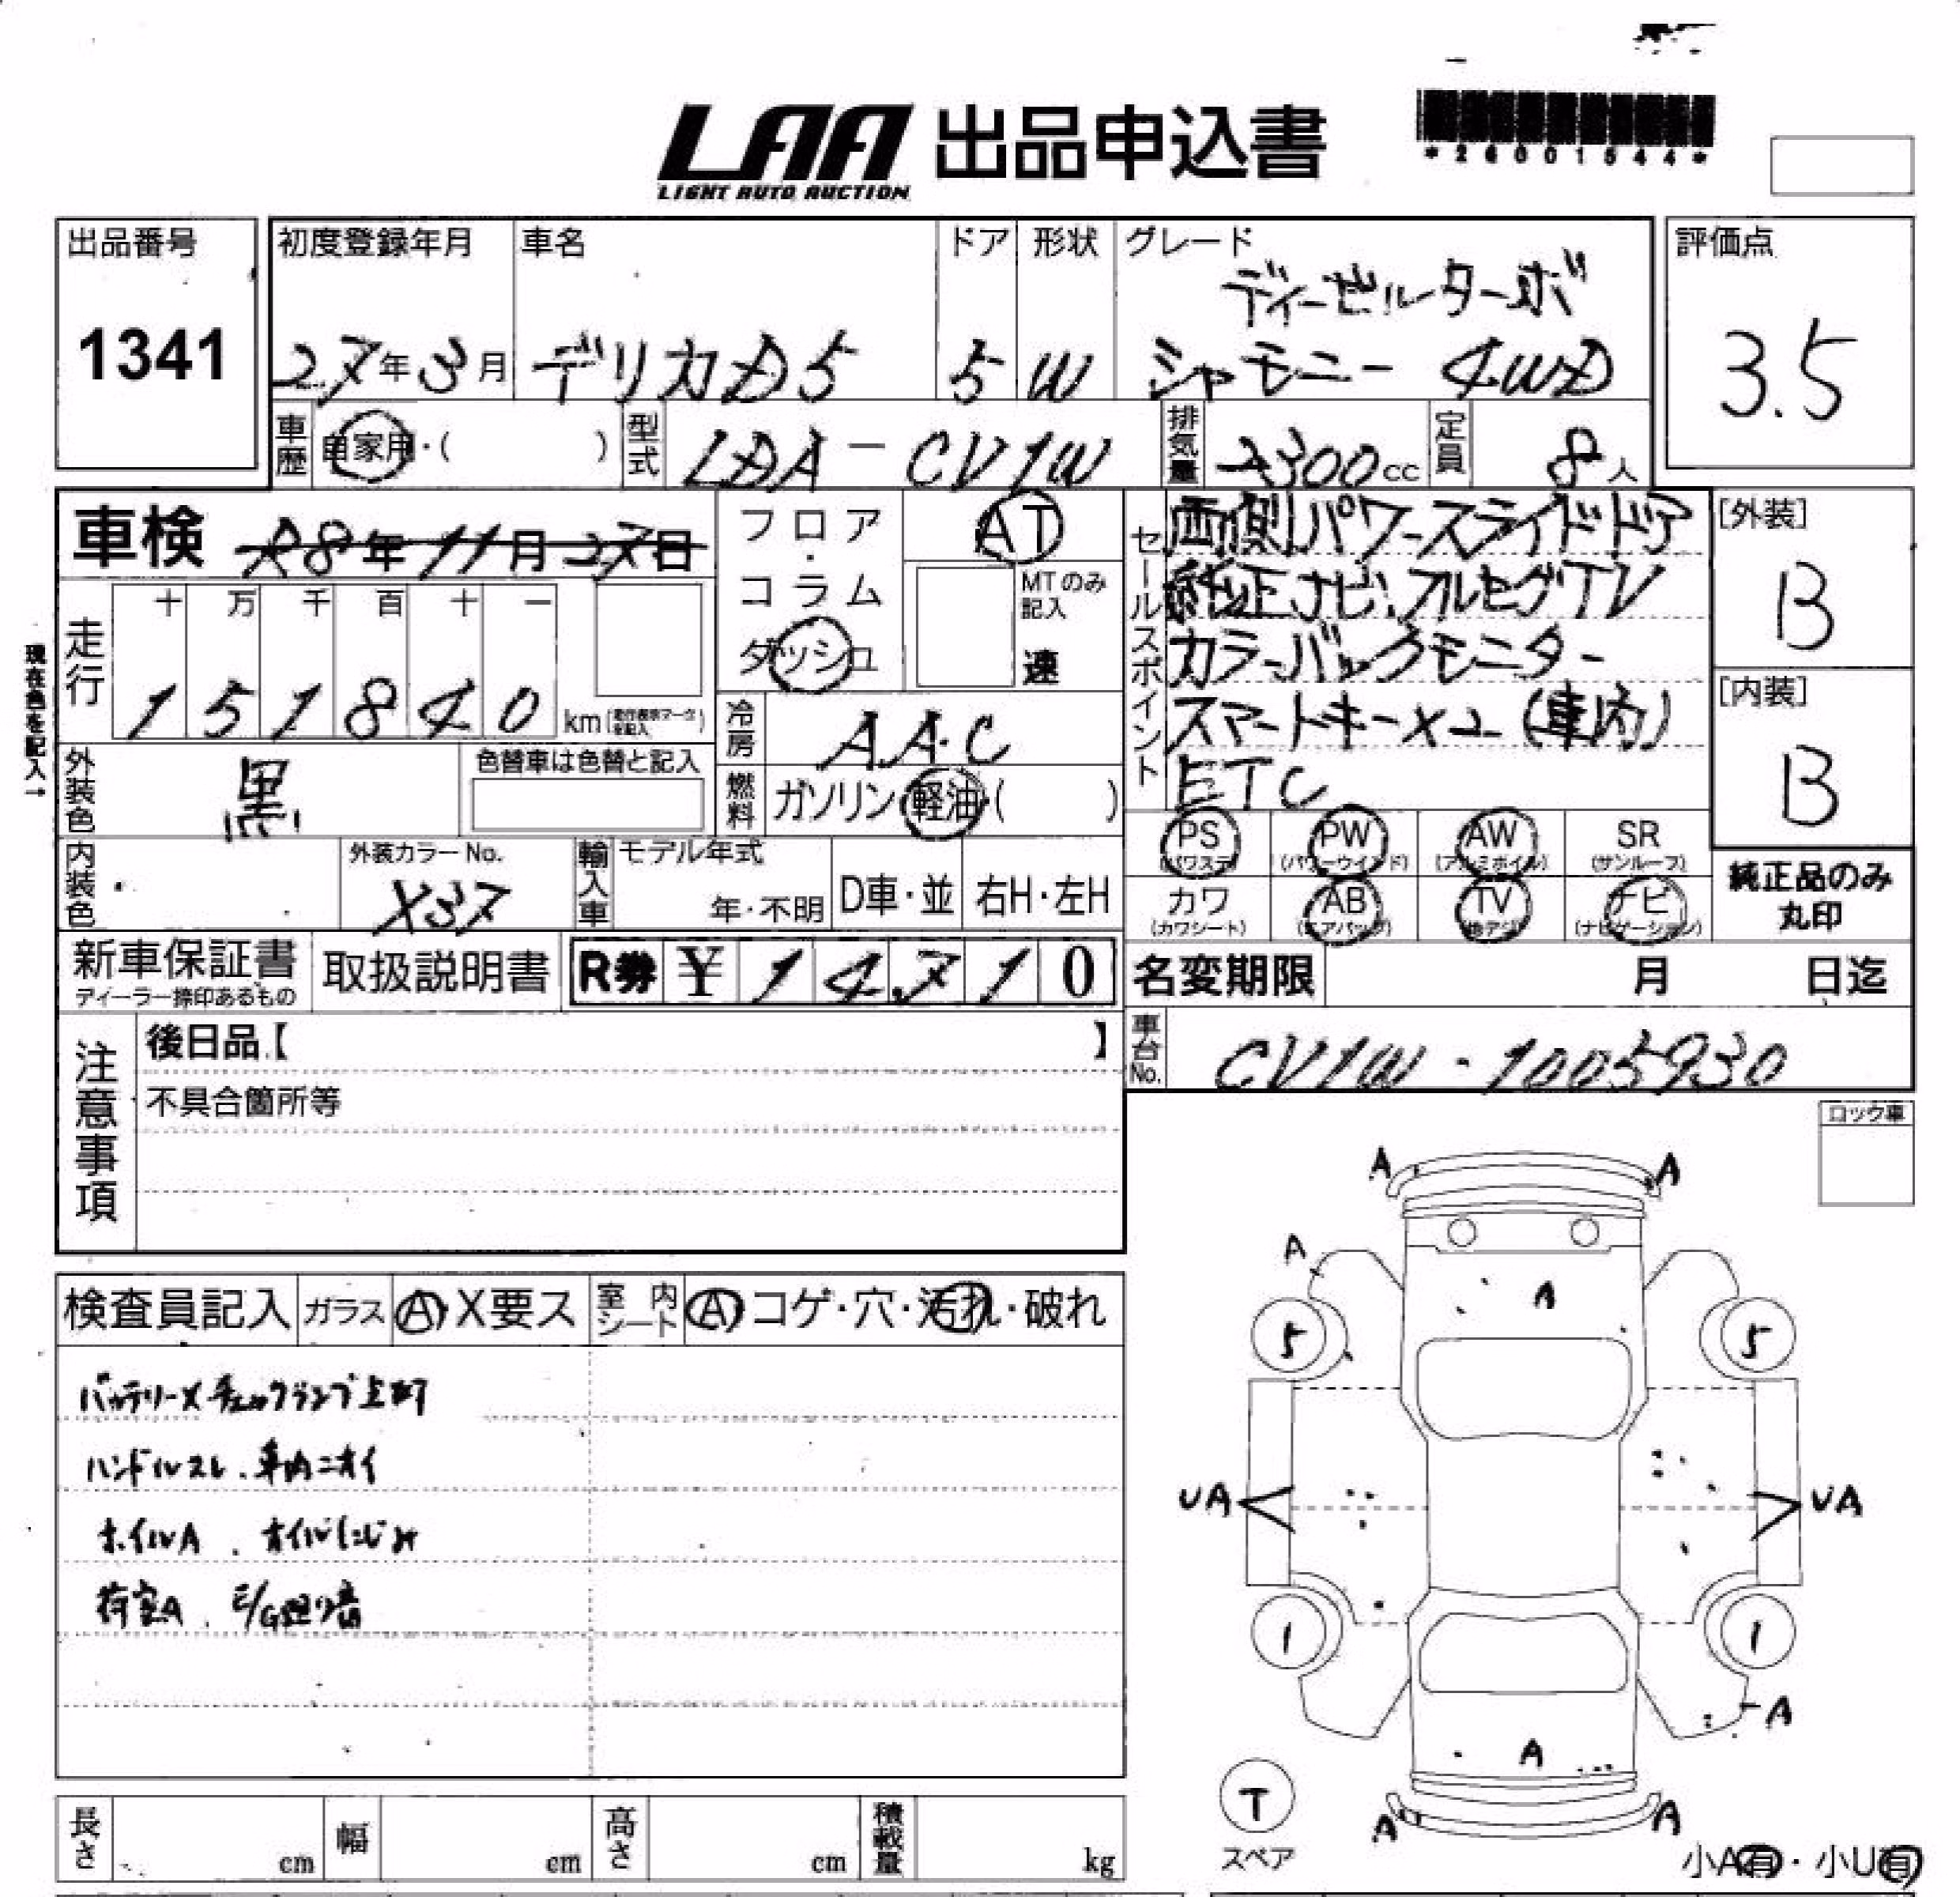 LAA 出品申込書
LIGHT AUTO AUCTION
*26001544*
出品番号
1341
初度登録年月
27年3月
車名
デリカD5
ドア
5
形状
W
グレード
ディーゼルターボ
シャモニー 4WD
評価点
3.5
車歴
自家用・( )
型式
LDA-CV1W
排気量
2300cc
定員
8人
車検 R8年11月27日
フロア・コラム
ダッシュ
AT
MTのみ記入
速
走行
現在色を記入→
十 万 千 百 十 一
1 5 1 8 4 0 km
外装色
黒
色替車は色替と記入
冷房
AAC
燃料
ガソリン・軽油・( )
内装色
外装カラーNo.
X37
輸入車
モデル年式
年・不明
D車・並
右H・左H
セールスポイント
両側パワースライドドア
純正ナビ、フルセグTV
カラーバックモニター
スマートキー×2 (車内)
ETC
[外装]
B
[内装]
B
PS (パワステ)
PW (パワーウインド)
AW (アルミホイル)
SR (サンルーフ)
カワ (カワシート)
AB (エアバッグ)
TV (地デジ)
ナビ (ナビゲーション)
純正品のみ丸印
新車保証書
ディーラー捺印あるもの
取扱説明書
R券 ¥ 1 4,7 1 0
名変期限 月 日迄
車台No.
CV1W-1005930
注意事項
後日品【 】
不具合箇所等
ロック車
検査員記入
ガラス A・X要ス
室内シート A・コゲ・穴・汚れ・破れ
バッテリーX チェックランプ点灯
ハンドルスレ、車内ニオイ
ホイルA、オイルにじみ
荷室A、E/G廻り音
A A
A
A
5 5
UA UA
1 1
A
A
A A
T
スペア
小A有・小U有
長さ cm
幅 cm
高さ cm
積載量 kg